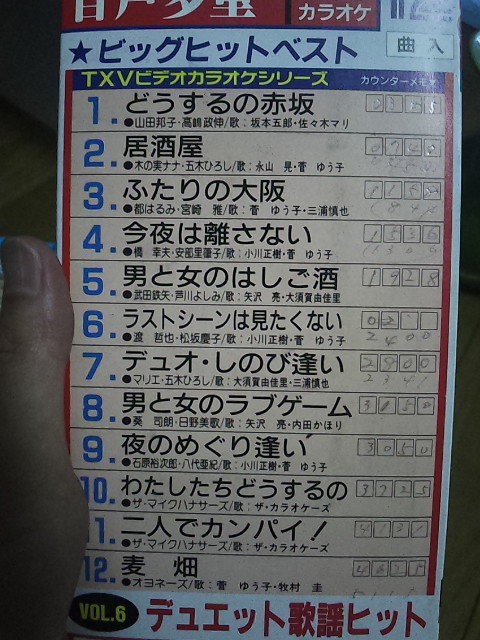 音声多重
カラオケ
★ビッグヒットベスト
曲入
TXVビデオカラオケシリーズ
カウンターメモ
1.どうするの赤坂
●山田邦子・高嶋政伸/歌：坂本五郎・佐々木マリ
2.居酒屋
●木の実ナナ・五木ひろし/歌：永山 晃・菅 ゆう子
3.ふたりの大阪
●都はるみ・宮崎 雅/歌：菅 ゆう子・三浦慎也
4.今夜は離さない
●橋 幸夫・安倍里葎子/歌：小川正樹・菅 ゆう子
1536
5.男と女のはしご酒
●武田鉄矢・芦川よしみ/歌：矢沢 亮・大須賀由佳里
1928
6.ラストシーンは見たくない
●渡 哲也・松坂慶子/歌：小川正樹・菅 ゆう子
2400
7.デュオ・しのび逢い
●マリエ・五木ひろし/歌：大須賀由佳里・三浦慎也
2900
8.男と女のラブゲーム
●葵 司朗・日野美歌/歌：矢沢 亮・内田かほり
9.夜のめぐり逢い
●石原裕次郎・八代亜紀/歌：小川正樹・菅 ゆう子
3050
10.わたしたちどうするの
●ザ・マイクハナサーズ/歌：ザ・カラオケーズ
3725
11.二人でカンパイ！
●ザ・マイクハナサーズ/歌：ザ・カラオケーズ
12.麦 畑
●オヨネーズ/歌：菅 ゆう子・牧村 圭
VOL.6 デュエット歌謡ヒット